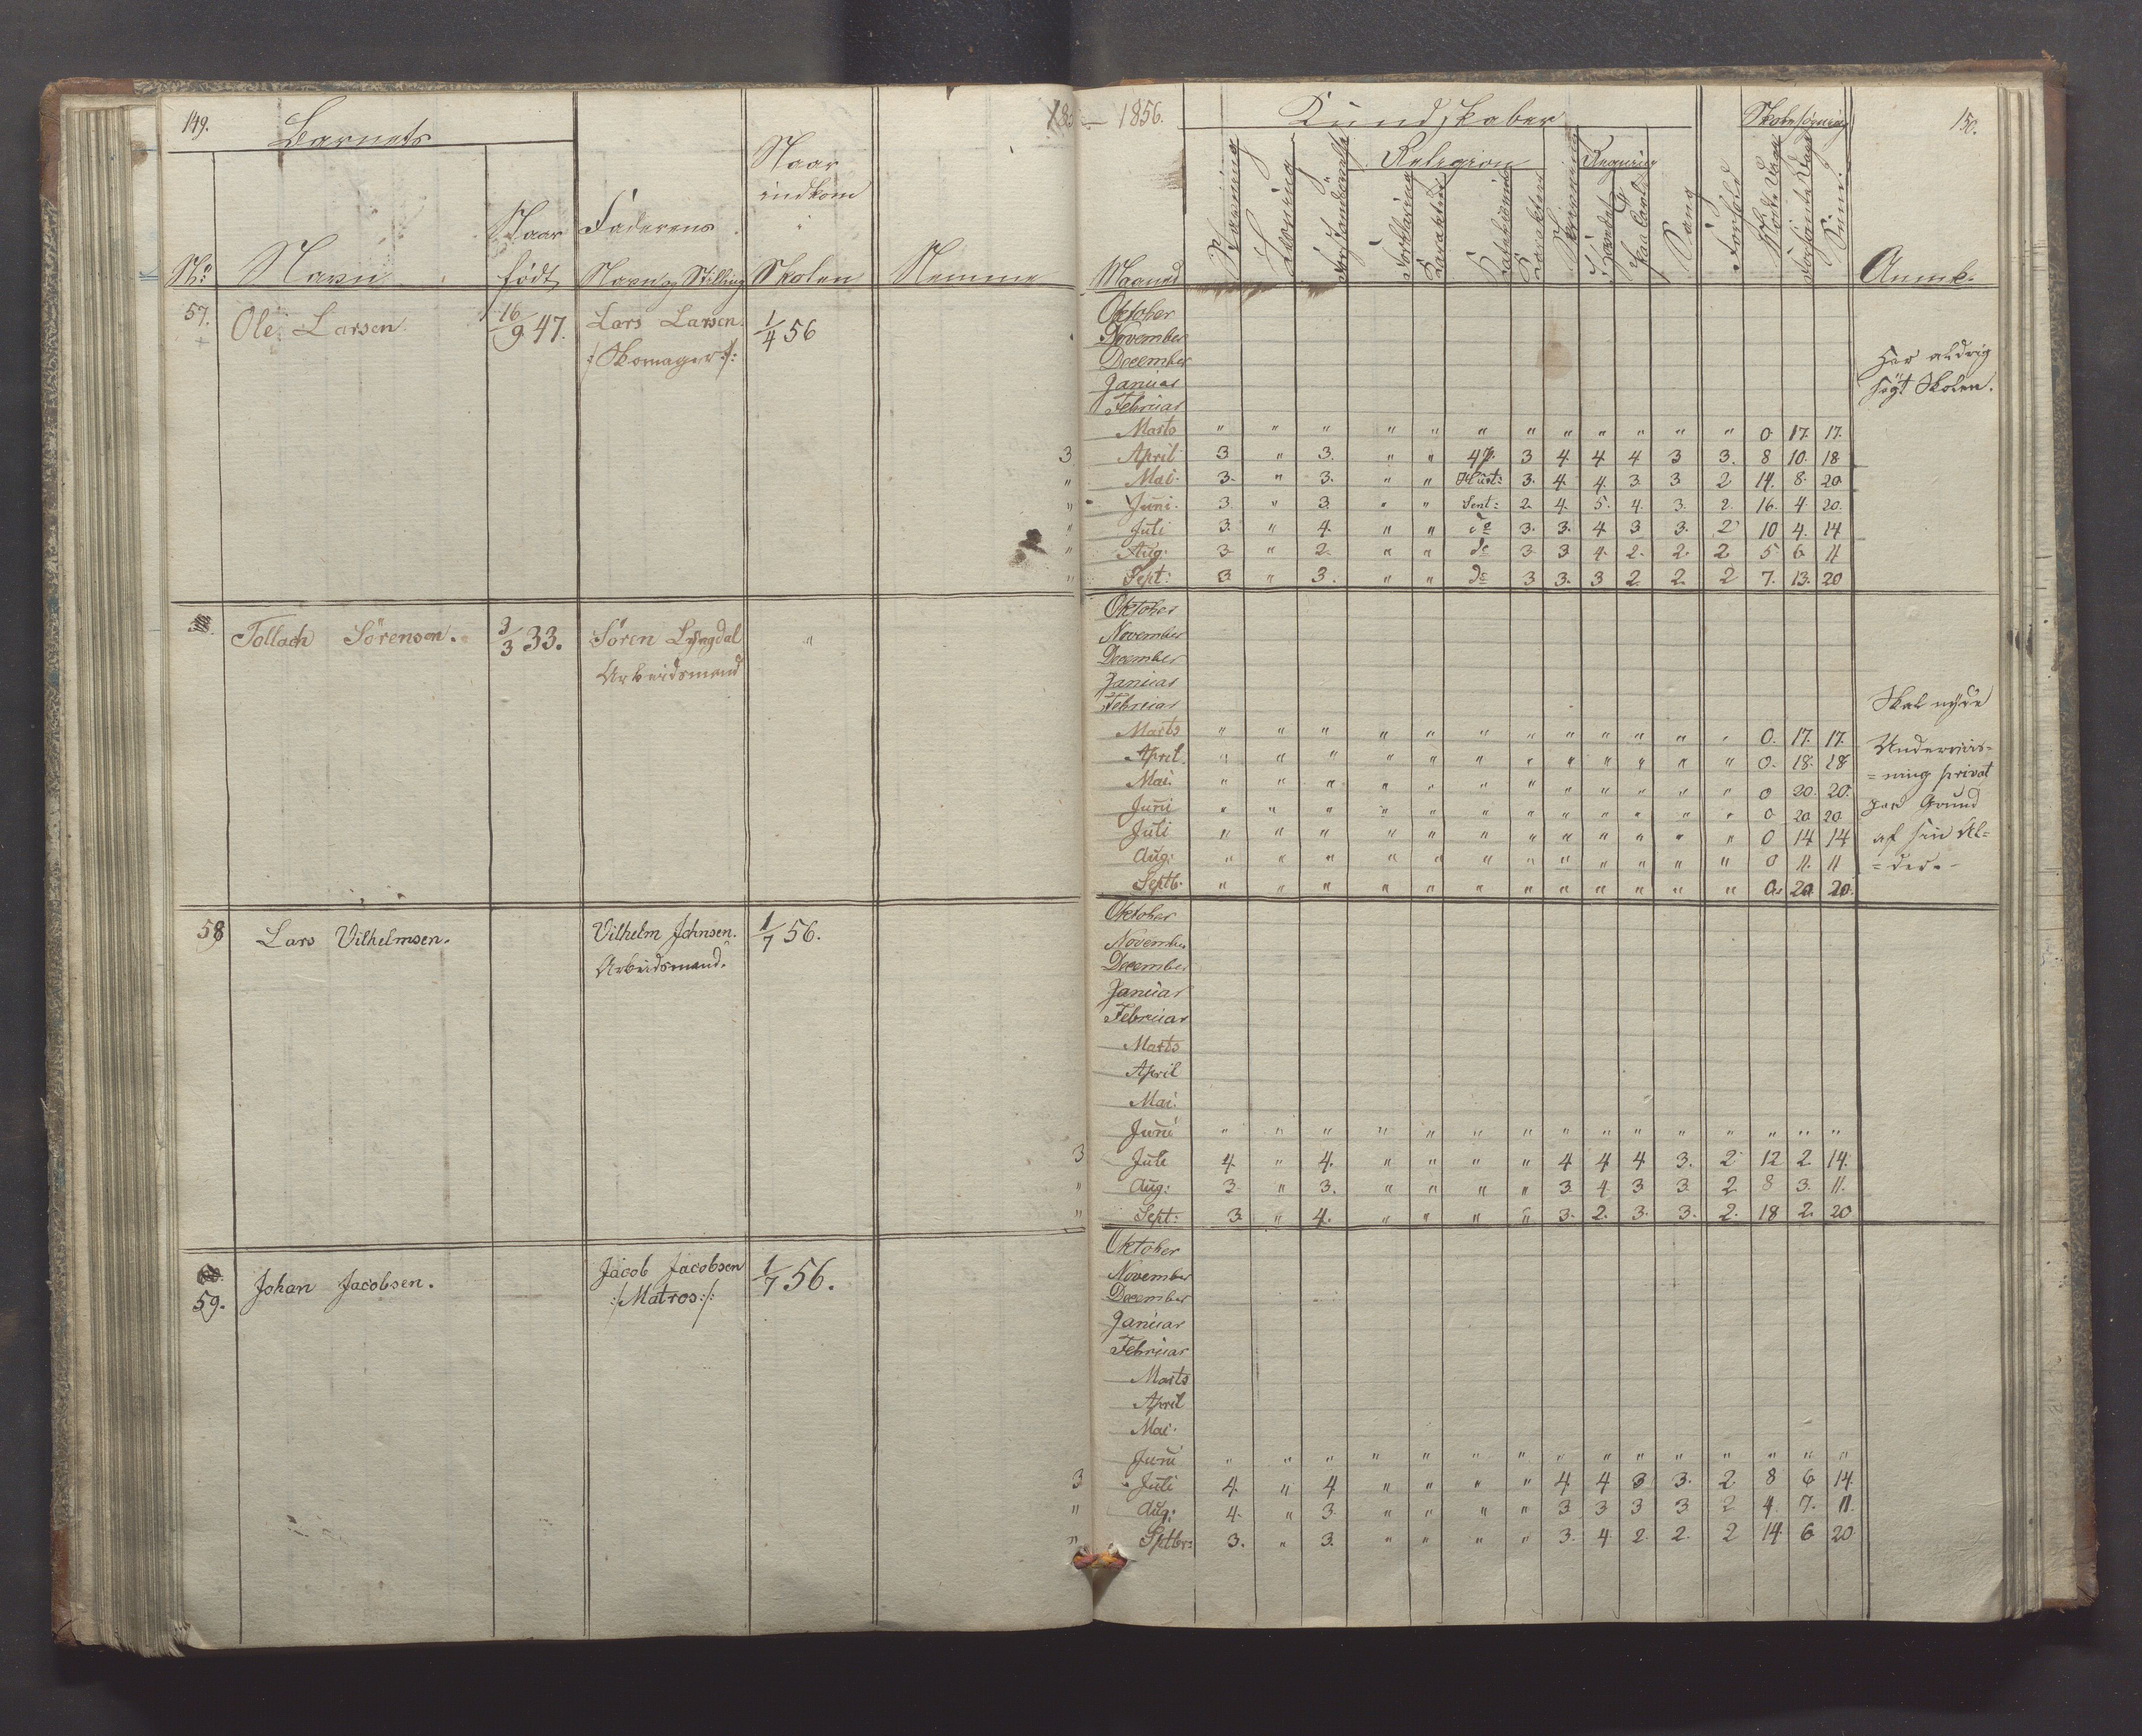 149.
Barnets
No Navn
Naar født
Faderens Navn og Stilling
Naar indkom i Skolen
Nemme
1856.
150.
Kundskaber
Religion
Regning
Skolesøgning
Maaned
Sang
Forhold
Sum.
Anmk.
57. Ole Larsen 16/9 47. Lars Larsen 1/4 56
/:Skomager:/
Har aldrig
søgt Skolen.
Oktober
November
December
Januar
Februar
Marts " " " " " " " " " " " " 0 17. 17.
3 April 3 " 3. " " 3 4 4 4 3 3. 8 10. 18
" Mai. 3. " 3. " " 3. 4. 4. 3 3 2 14. 8. 20
" Juni. 3. " 3. " " Sent: 2. 4. 5. 4. 3. 2. 16. 4. 20.
" Juli 3. " 4. " " do 3. 3. 4 3 3. 2 10 4. 14
" Aug. 3 " 2. " " do 3. 3 4. 2. 2. 2 5 6 11
" Sept: 3. " 3. " " do 3 3. 3 2 2 2 7. 13. 20
Tollach Sørensen. 3/3 33. Søren Lyngdal "
Arbeidsmand
Oktober
November
December
Januar
Februar
Marts " " " " " " " " " " " " 0. 17. 17.
April. " " " " " " " " " " " " 0. 18. 18
Mai. " " " " " " " " " " " " 0 20. 20.
Juni " " " " " " " " " " " " 0 20 20
Juli " " " " " " " " " " " " 0 14 14
Aug: " " " " " " " " " " " " 0 11. 11
Septb. " " " " " " " " " " " " 0. 20 20.
Skal nyde
Underviis=
=ning privat
paa Grund
af sin Al=
=der.
58 Lars Vilhelmsen. Vilhelm Johnsen. 1/7 56.
Arbeidsmand.
Oktober
November
December
Januar
Februar
Marts
April
Mai.
Juni " " " " " " " " " " " " " " "
3 Juli 4. " 4. " " " " 4 4 4 3. 2 12 2 14.
" Aug: 3. " 3. " " " " 3. 4 3 3 2 8 3. 11.
" Sept: 3. " 4. " " " " 3. 2. 3. 3. 2. 18 2. 20
59. Johan Jacobsen. Jacob Jacobsen 1/7 56.
:/Matros:/:
Oktober
November
December
Januar
Februar
Marts
April
Mai.
Juni " " " " " " " " " " " " " " "
3 Juli 4. " 4 " " " " 4. 4 3 3. 2 8 6 14.
" Aug: 4. " 3 " " " " 3 3 3 3 2 4 7. 11.
" Septbr: 3. " 3. " " " " 3. 4 2. 2. 2 14 6 20.